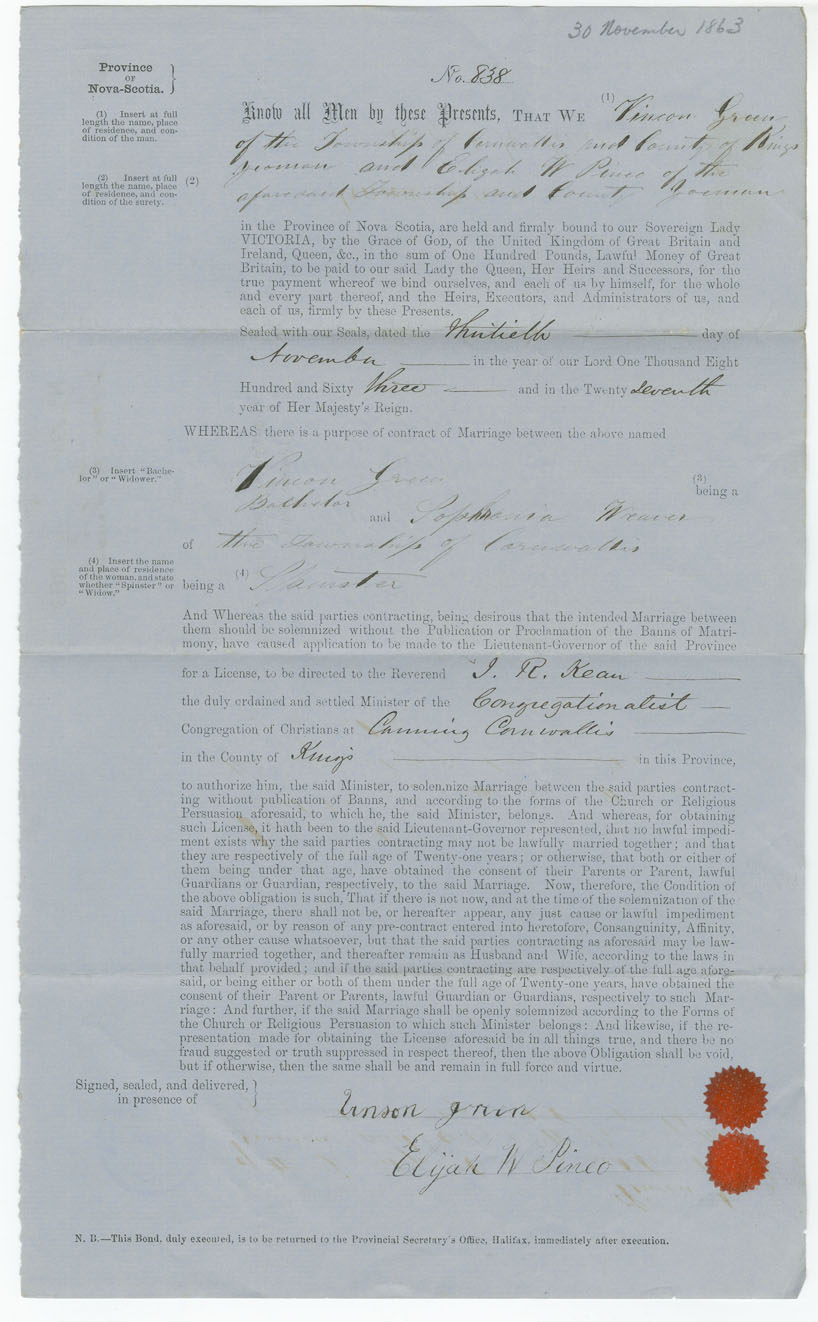 30 November 1863
Province
OF
Nova-Scotia.
No. 838
(1) Insert at full
length the name, place
of residence, and con-
dition of the man.
(2) Insert at full
length the name, place
of residence, and con-
dition of the surety.
Know all Men by these Presents, THAT WE (1) Vinson Green
of the Township of Cornwallis and County of Kings
yeoman and Elijah W Pineo of the
(2) aforesaid Township and County Yeoman
in the Province of Nova Scotia, are held and firmly bound to our Sovereign Lady
VICTORIA, by the Grace of GOD, of the United Kingdom of Great Britain and
Ireland, Queen, &c., in the sum of One Hundred Pounds, Lawful Money of Great
Britain, to be paid to our said Lady the Queen, Her Heirs and Successors, for the
true payment whereof we bind ourselves, and each of us by himself, for the whole
and every part thereof, and the Heirs, Executors, and Administrators of us, and
each of us, firmly by these Presents.
Sealed with our Seals, dated the thirtieth day of
November in the year of our Lord One Thousand Eight
Hundred and Sixty three and in the Twenty seventh
year of Her Majesty's Reign.
WHEREAS there is a purpose of contract of Marriage between the above named
(3) Insert "Bache-
lor" or "Widower."
Vinson Green (3) being a
Batchelor and Sophronia Weaver
of the Township of Cornwallis
(4) Insert the name
and place of residence
of the woman, and state
whether "Spinster" or
"Widow."
being a (4) Spinster
And Whereas the said parties contracting, being desirous that the intended Marriage between
them should be solemnized without the Publication or Proclamation of the Banns of Matri-
mony, have caused application to be made to the Lieutenant-Governor of the said Province
for a License, to be directed to the Reverend J. R. Kean
the duly ordained and settled Minister of the Congregationalist
Congregation of Christians at Canning Cornwallis
in the County of Kings in this Province,
to authorize him, the said Minister, to solemnize Marriage between the said parties contract-
ing without publication of Banns, and according to the forms of the Church or Religious
Persuasion aforesaid, to which he, the said Minister, belongs. And whereas, for obtaining
such License, it hath been to the said Lieutenant-Governor represented, that no lawful impedi-
ment exists why the said parties contracting may not be lawfully married together; and that
they are respectively of the full age of Twenty-one years; or otherwise, that both or either of
them being under that age, have obtained the consent of their Parents or Parent, lawful
Guardians or Guardian, respectively, to the said Marriage. Now, therefore, the Condition of
the above obligation is such, That if there is not now, and at the time of the solemnization of the
said Marriage, there shall not be, or hereafter appear, any just cause or lawful impediment
as aforesaid, or by reason of any pre-contract entered into heretofore, Consanguinity, Affinity,
or any other cause whatsoever, but that the said parties contracting as aforesaid may be law-
fully married together, and thereafter remain as Husband and Wife, according to the laws in
that behalf provided; and if the said parties contracting are respectively of the full age afore-
said, or being either or both of them under the full age of Twenty-one years, have obtained the
consent of their Parent or Parents, lawful Guardian or Guardians, respectively to such Mar-
riage: And further, if the said Marriage shall be openly solemnized according to the Forms of
the Church or Religious Persuasion to which such Minister belongs: And likewise, if the re-
presentation made for obtaining the License aforesaid be in all things true, and there be no
fraud suggested or truth suppressed in respect thereof, then the above Obligation shall be void,
but if otherwise, then the same shall be and remain in full force and virtue.
Signed, sealed, and delivered,
in presence of
Vinson green
Elijah W Pineo
N. B.—This Bond, duly executed, is to be returned to the Provincial Secretary's Office, Halifax, immediately after execution.